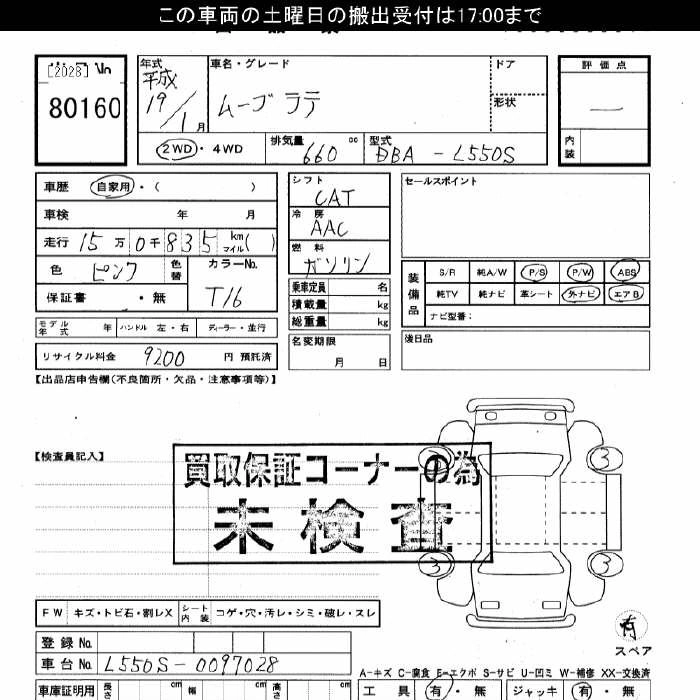 この車両の土曜日の搬出受付は17:00まで
[2028] No
80160
年式
平成
19/1月
車名・グレード
ムーヴ ラテ
ドア
形状
評価点
―
内装
2WD・4WD
排気量
660 cc
型式
DBA - L550S
車歴 自家用・( )
車検 年 月
走行 15万0千835 km マイル( )
色 ピンク 色替
カラーNo.
T16
保証書 ・無
シフト
CAT
冷房
AAC
燃料
ガソリン
乗車定員 名
積載量 kg
総重量 kg
セールスポイント
装備品
S/R 純A/W P/S P/W ABS
純TV 純ナビ 革シート 外ナビ エアB
ナビ型番:
モデル年式 年 ハンドル 左・右 ディーラー・並行
名変期限
月 日
後日品
リサイクル料金 9200 円 預託済
【出品店申告欄(不良箇所・欠品・注意事項等)】
【検査員記入】
買取保証コーナーの為
未検査
3 3
3 3
有
スペア
FW キズ・トビ石・割レX シート内装 コゲ・穴・汚レ・シミ・破レ・スレ
登録 No.
車台 No. L550S-0097028
A-キズ C-腐食 E-エクボ S-サビ U-凹ミ W-補修 XX-交換済
車庫証明用 長さ cm 幅 cm 高さ cm
工具 有・無 ジャッキ 有・無